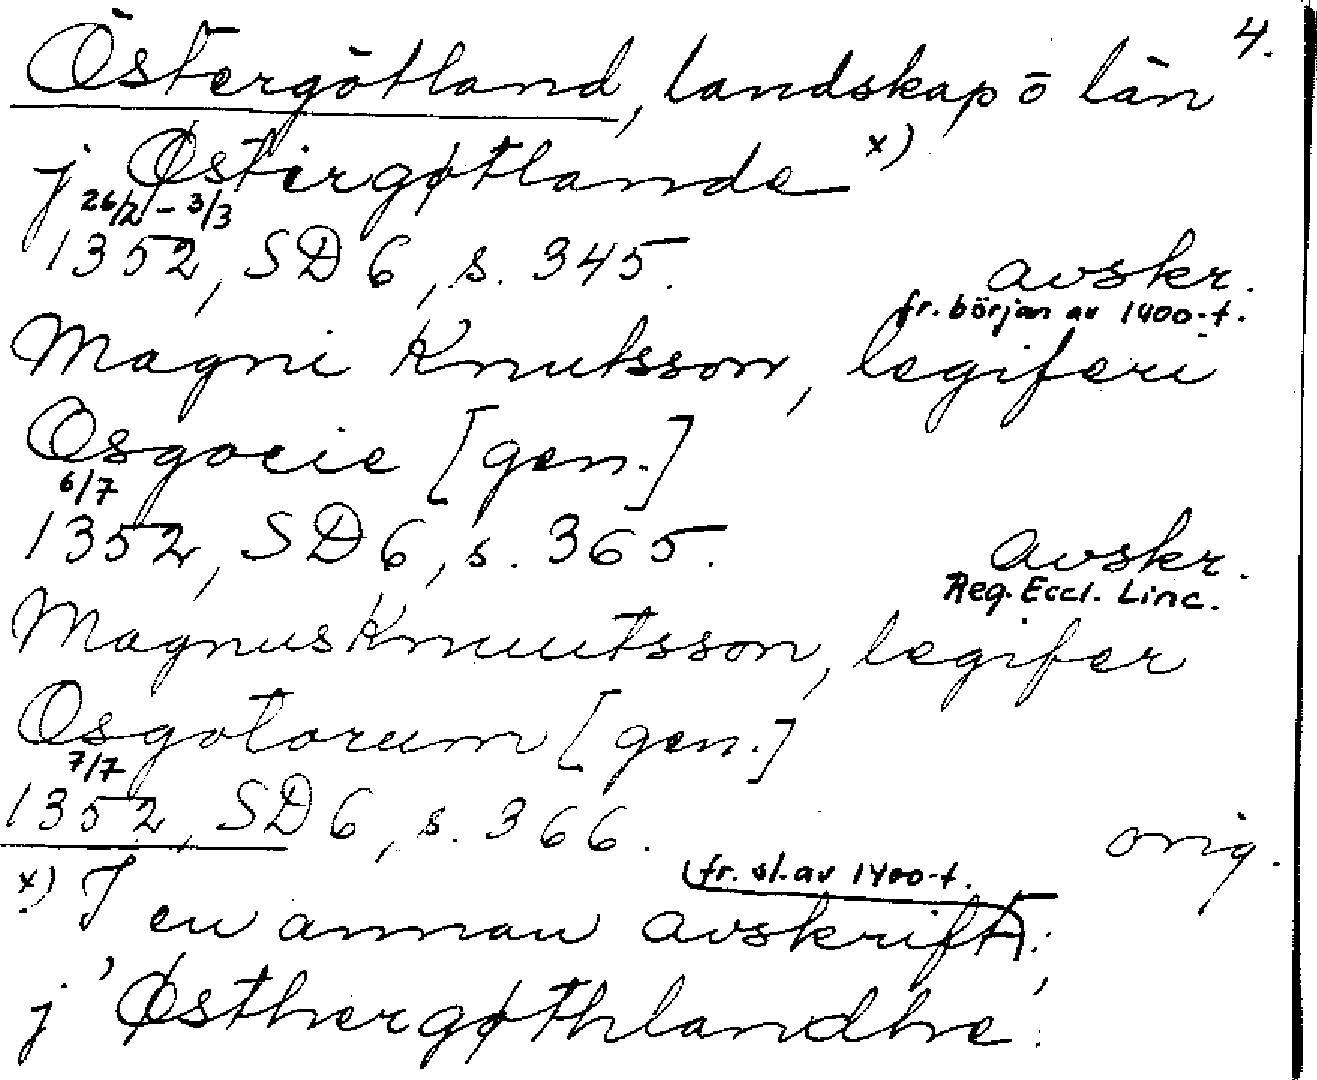 4.
Östergötland, landskap o län
j Østirgøtlande x)
26/2 - 3/3
1352, SD 6, s. 345. avskr.
fr. början av 1400-t.
Magni Knutsson, legiferi
Osgocie [gen.]
6/7
1352, SD 6, s. 365. avskr.
Reg. Eccl. Linc.
Magnus Knuutsson, legifer
Osgotorum [gen.]
7/7
1352, SD 6, s. 366. orig.
fr. sl. av 1400-t.
x) I en annan avskrift:
j 'Østhergøthlandhe'.